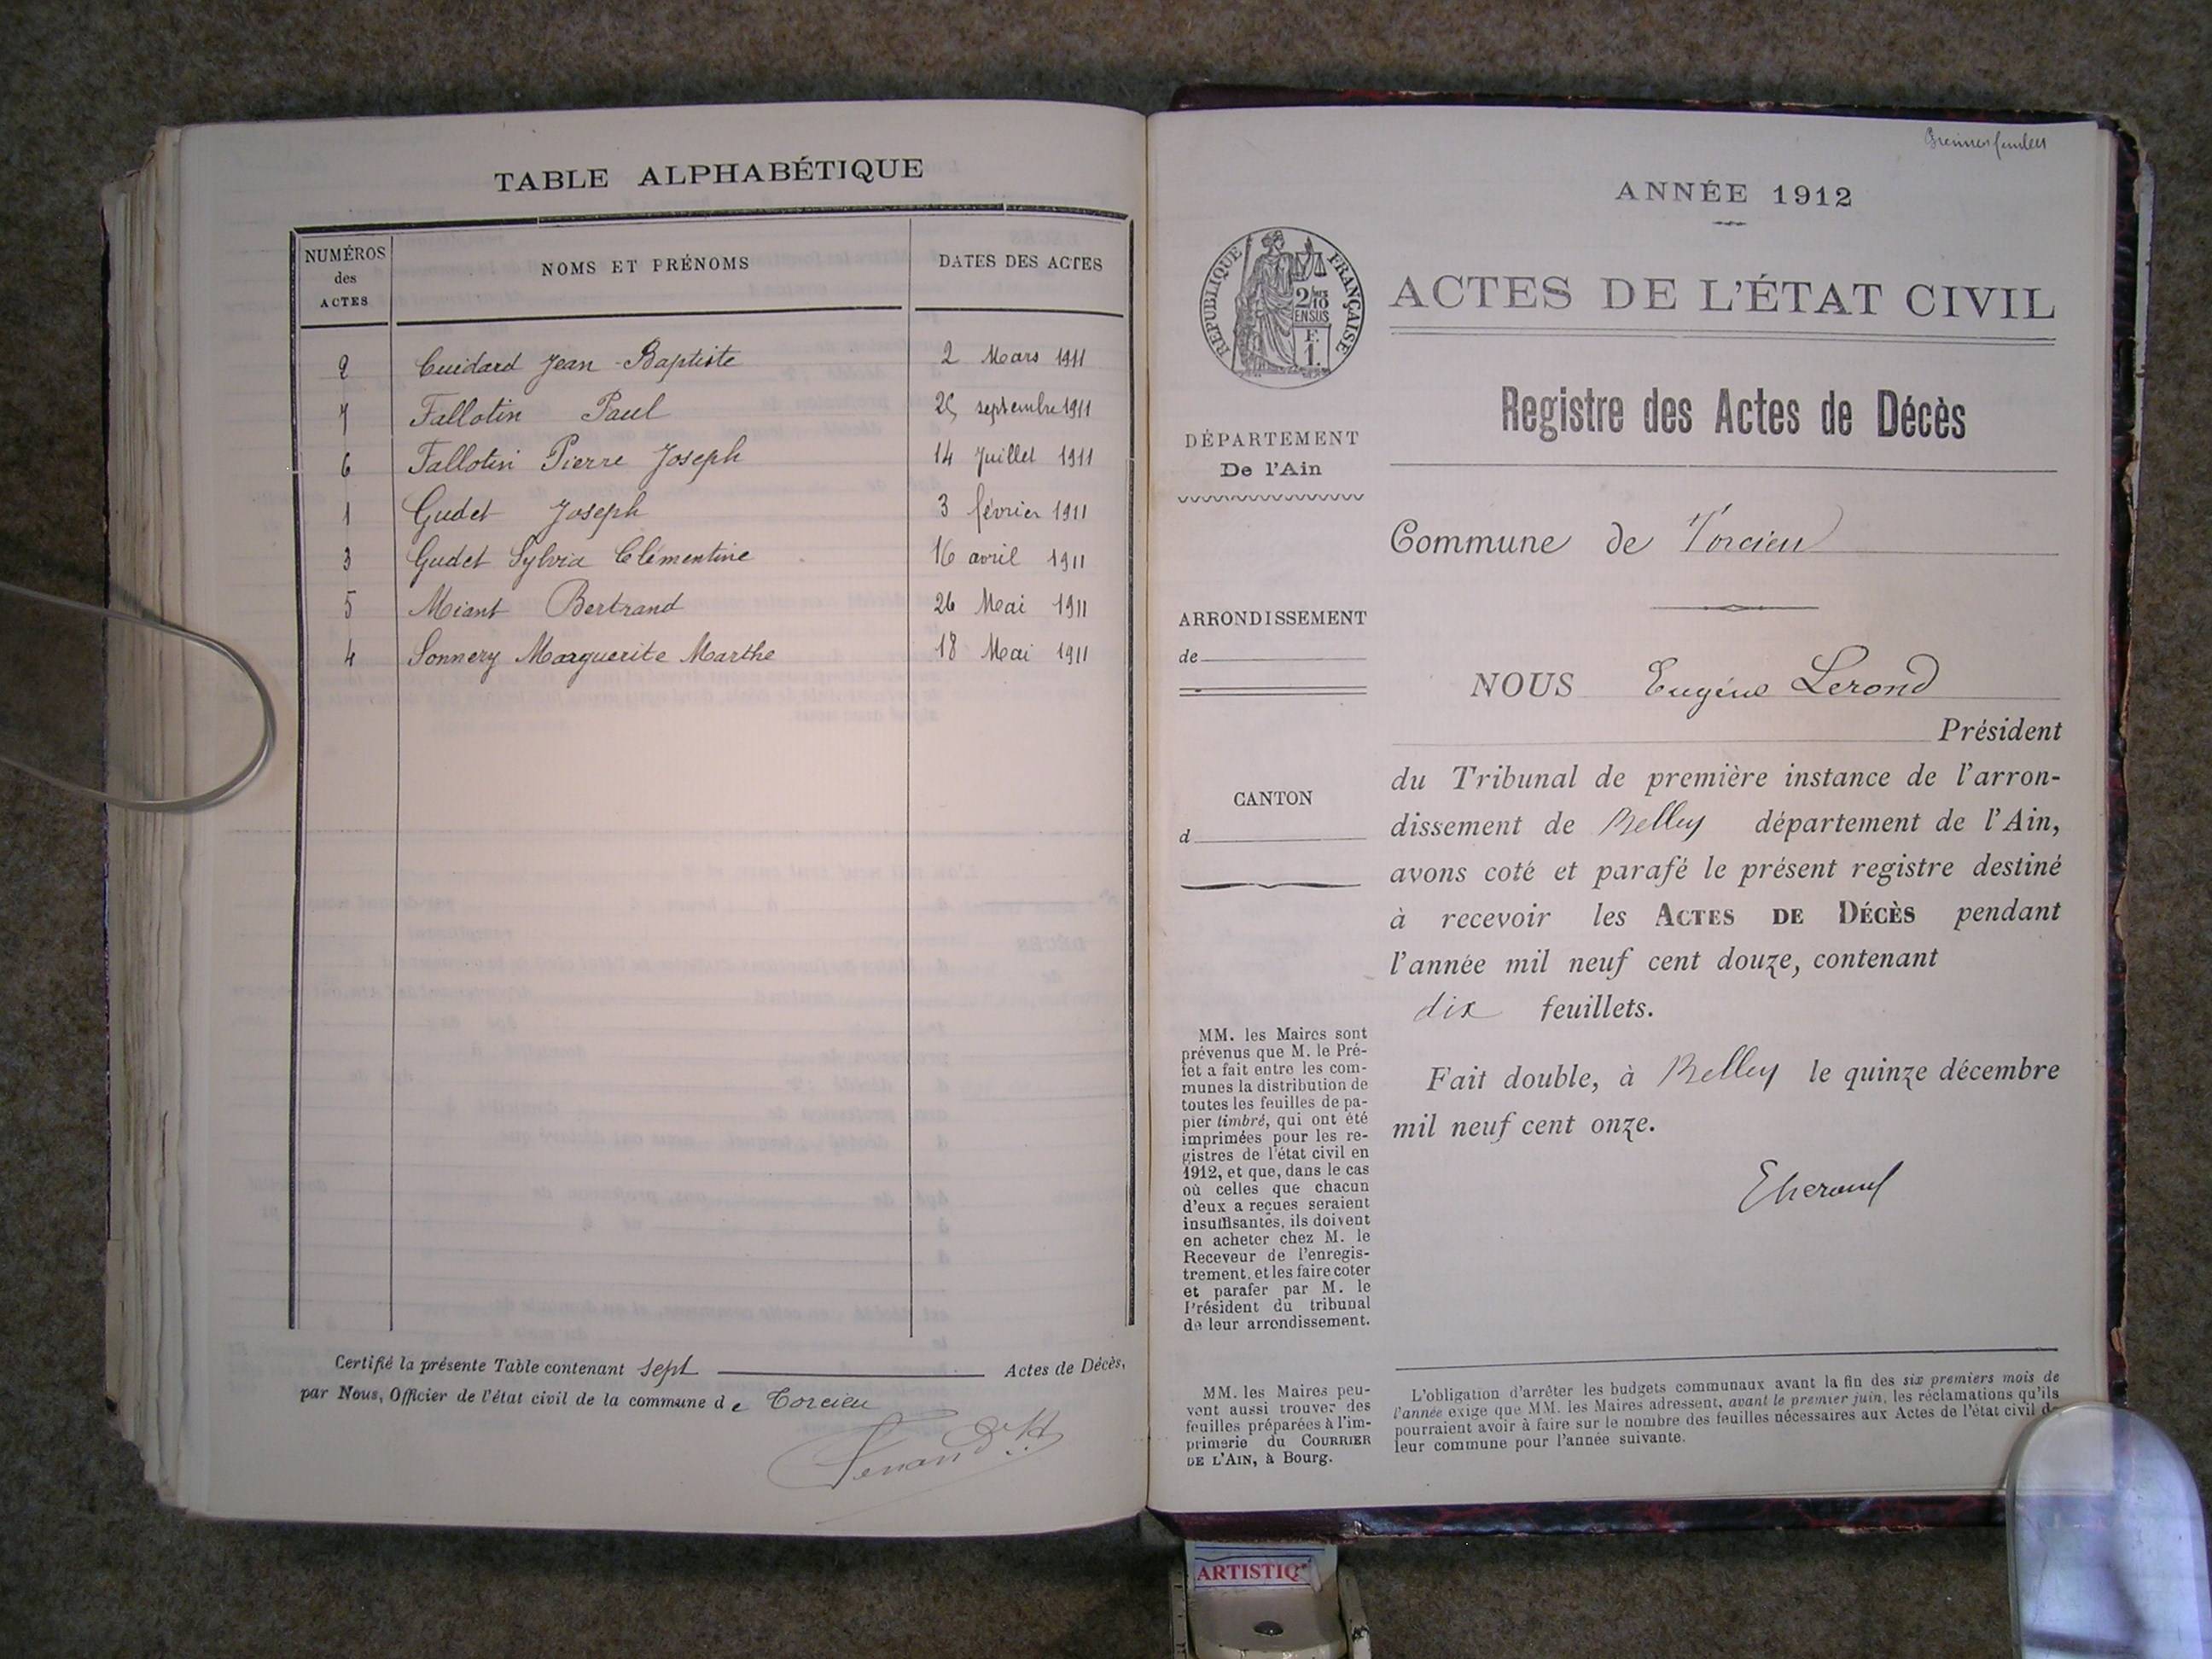 TABLE ALPHABÉTIQUE
NUMÉROS des ACTES NOMS ET PRÉNOMS DATES DES ACTES
2 Cuidard Jean-Baptiste 2 Mars 1911
7 Fallotin Paul 25 septembre 1911
6 Fallotin Pierre Joseph 14 Juillet 1911
1 Gudet Joseph 3 février 1911
3 Gudet Sylvia Clémentine 16 avril 1911
5 Miant Bertrand 26 Mai 1911
4 Sonnery Marguerite Marthe 18 Mai 1911
Certifié la présente Table contenant sept Actes de Décès,
par Nous, Officier de l'état civil de la commune de Torcieu
ANNÉE 1912
RÉPUBLIQUE FRANÇAISE
ACTES DE L'ÉTAT CIVIL
Registre des Actes de Décès
DÉPARTEMENT
De l'Ain
Commune de Torcieu
ARRONDISSEMENT
de
CANTON
d
NOUS Eugène Lerond
Président
du Tribunal de première instance de l'arron-
dissement de Belley département de l'Ain,
avons coté et parafé le présent registre destiné
à recevoir les ACTES DE DÉCÈS pendant
l'année mil neuf cent douze, contenant
dix feuillets.
Fait double, à Belley le quinze décembre
mil neuf cent onze.
MM. les Maires sont
prévenus que M. le Pré-
fet a fait entre les com-
munes la distribution de
toutes les feuilles de pa-
pier timbré, qui ont été
imprimées pour les re-
gistres de l'état civil en
1912, et que, dans le cas
où celles que chacun
d'eux a reçues seraient
insuffisantes, ils doivent
en acheter chez M. le
Receveur de l'enregis-
trement, et les faire coter
et parafer par M. le
Président du tribunal
de leur arrondissement.
MM. les Maires peu-
vent aussi trouver des
feuilles préparées à l'im-
primerie du COURRIER
DE L'AIN, à Bourg.
L'obligation d'arrêter les budgets communaux avant la fin des six premiers mois de
l'année exige que MM. les Maires adressent, avant le premier juin, les réclamations qu'ils
pourraient avoir à faire sur le nombre des feuilles nécessaires aux Actes de l'état civil de
leur commune pour l'année suivante.
ARTISTIQ